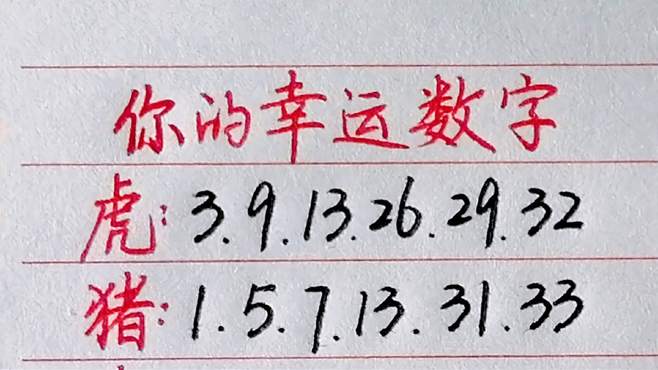 你的幸运数字
虎:3.9.13.26.29.32
猪:1.5.7.13.31.33